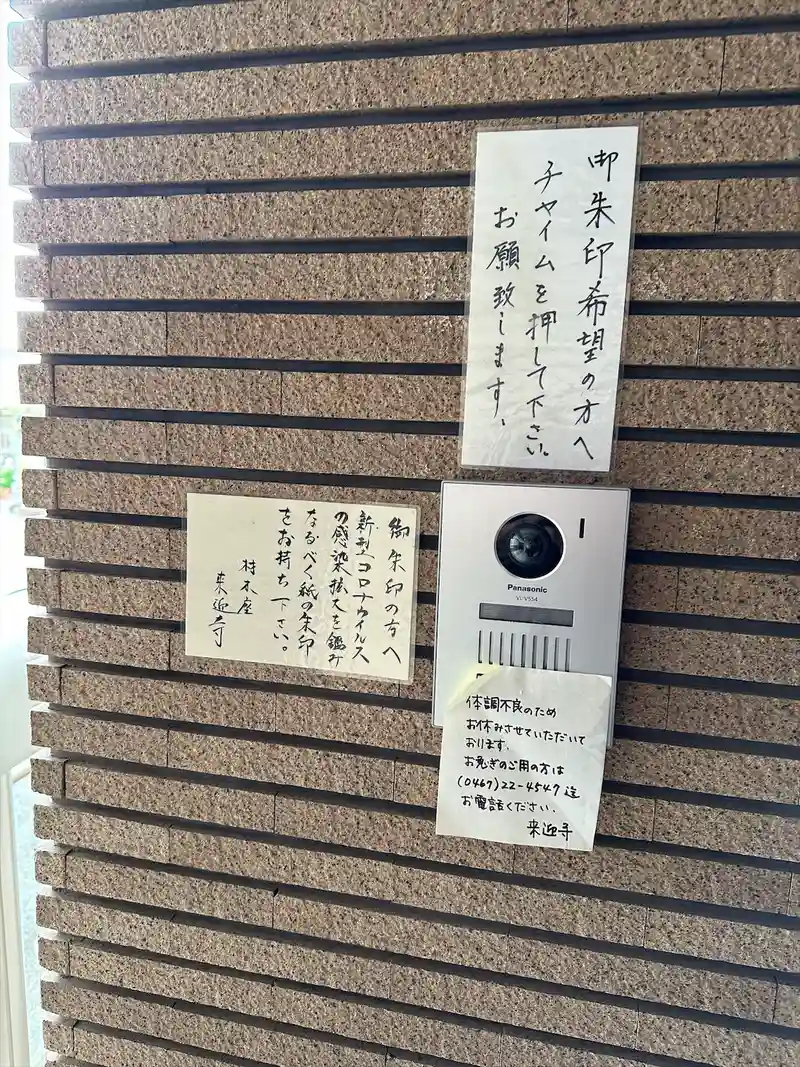 御朱印希望の方へ
チャイムを押して下さい。
お願致します。
御朱印の方へ
新型コロナウイルス
の感染拡大を鑑み
なるべく紙の朱印
をお持ち下さい。
材木座
来迎寺
Panasonic
VL-V554
体調不良のため
お休みさせていただいて
おります。
お急ぎのご用の方は
(0467)22-4547迄
お電話ください。
来迎寺